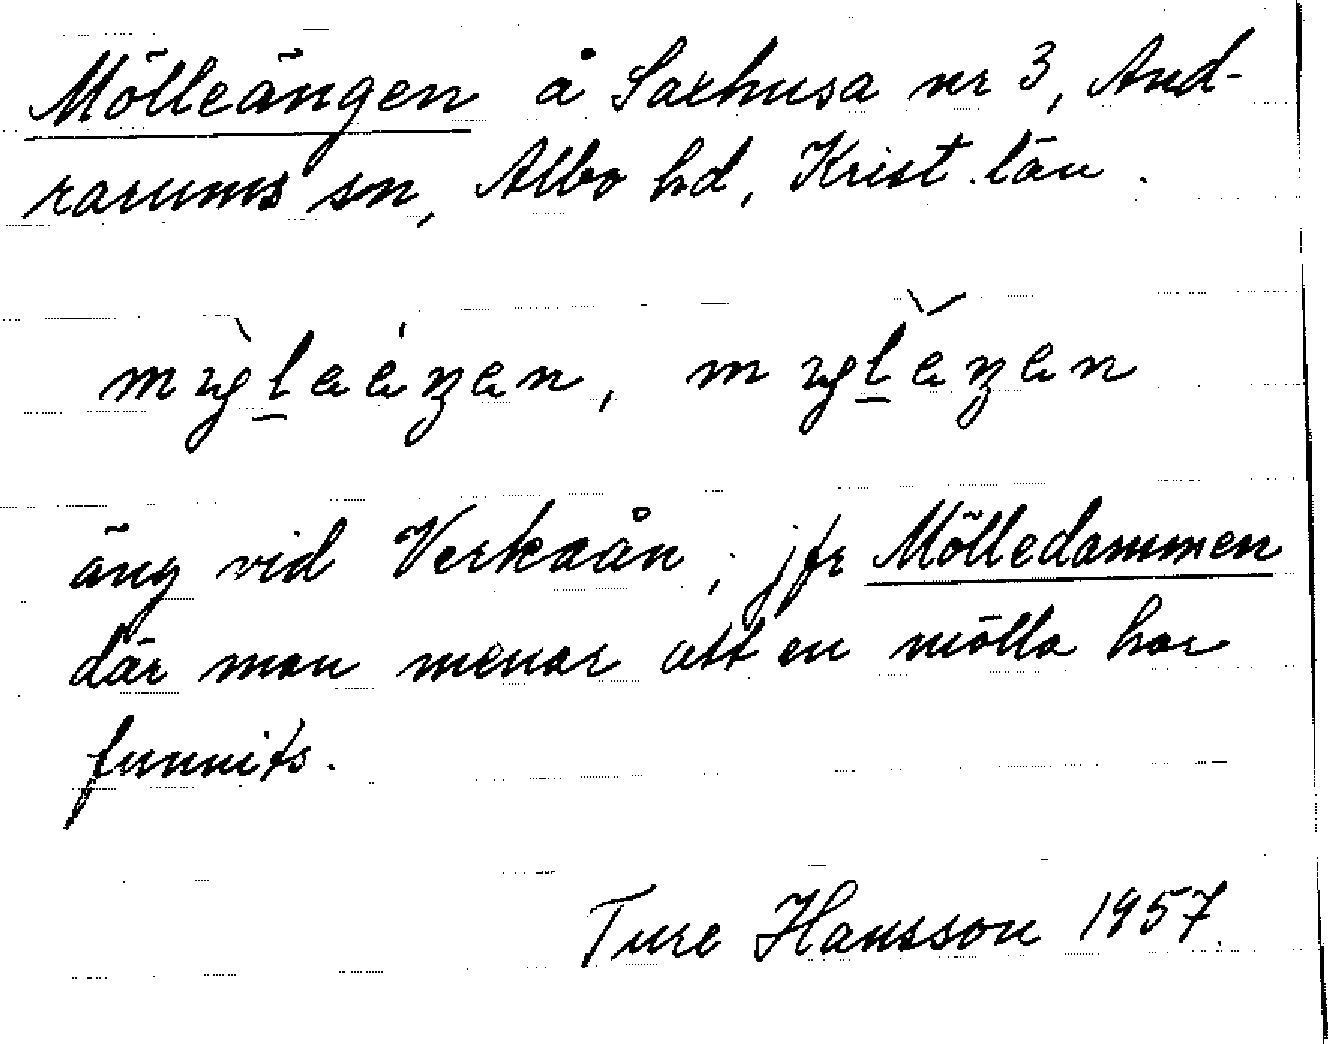 Mölleängen å Saxhusa nr 3, And-
rarums sn, Albo hd, Krist. län.
äng vid Verkaån, jfr Mölledammen
där man menar att en mölla har
funnits.
Ture Hansson 1957.